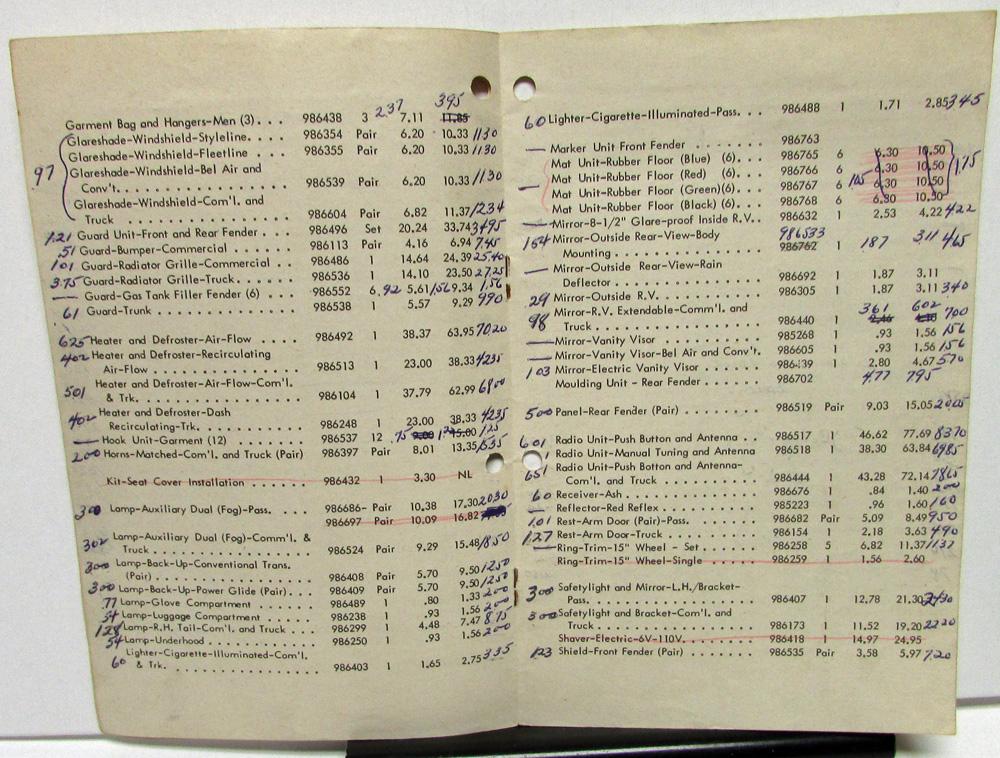 395
237
Garment Bag and Hangers-Men (3) . . . 986438 3 7.11 11.85
Glareshade-Windshield-Styleline. . . . . 986354 Pair 6.20 10.33 1130
Glareshade-Windshield-Fleetline . . . . 986355 Pair 6.20 10.33 1130
97 Glareshade-Windshield-Bel Air and
Conv't. . . . . . . . . . . . . . . . . . 986539 Pair 6.20 10.33 1130
Glareshade-Windshield-Com'l. and
Truck . . . . . . . . . . . . . . . . . . 986604 Pair 6.82 11.37 1234
1.21 Guard Unit-Front and Rear Fender . . . 986496 Set 20.24 33.74 3495
.51 Guard-Bumper-Commercial . . . . . . 986113 Pair 4.16 6.94 7.45
101 Guard-Radiator Grille-Commercial . . 986486 1 14.64 24.39 25.40
3.75 Guard-Radiator Grille-Truck. . . . . . 986536 1 14.10 23.50 27.25
— Guard-Gas Tank Filler Fender (6) . . . 986552 6 .92 5.61 156 9.34 1.56
61 Guard-Trunk . . . . . . . . . . . . . . 986538 1 5.57 9.29 990
625 Heater and Defroster-Air-Flow . . . . . 986492 1 38.37 63.95 7020
402 Heater and Defroster-Recirculating
Air-Flow . . . . . . . . . . . . . . . . 986513 1 23.00 38.33 4235
501 Heater and Defroster-Air-Flow-Com'l.
& Trk. . . . . . . . . . . . . . . . . . 986104 1 37.79 62.99 6900
402 Heater and Defroster-Dash
Recirculating-Trk. . . . . . . . . . . . 986248 1 23.00 38.33 4235
— Hook Unit-Garment (12) . . . . . . . . 986537 12 .75 9.00 15.00 125
200 Horns-Matched-Com'l. and Truck (Pair) 986397 Pair 8.01 13.35 1535
Kit-Seat Cover Installation . . . . . . 986432 1 3.30 NL
300 Lamp-Auxiliary Dual (Fog)-Pass. . . . . 986686- Pair 10.38 17.30 2030
986697 Pair 10.09 16.82
302 Lamp-Auxiliary Dual (Fog)-Comm'l. &
Truck . . . . . . . . . . . . . . . . . 986524 Pair 9.29 15.48 1850
300 Lamp-Back-Up-Conventional Trans.
(Pair) . . . . . . . . . . . . . . . . . 986408 Pair 5.70 9.50 1250
300 Lamp-Back-Up-Power Glide (Pair) . . . 986409 Pair 5.70 9.50 1250
.77 Lamp-Glove Compartment . . . . . . . 986489 1 .80 1.33 200
54 Lamp-Luggage Compartment . . . . . . 986238 1 .93 1.56 200
128 Lamp-R.H. Tail-Com'l. and Truck . . . 986299 1 4.48 7.47 875
54 Lamp-Underhood . . . . . . . . . . . . 986250 1 .93 1.56 200
Lighter-Cigarette-Illuminated-Com'l.
60 & Trk. . . . . . . . . . . . . . . . . . 986403 1 1.65 2.75 335
60 Lighter-Cigarette-Illuminated-Pass. . . . 986488 1 1.71 2.85 345
— Marker Unit Front Fender . . . . . . . 986763
Mat Unit-Rubber Floor (Blue) (6). . . . 986765 6 6.30 10.50
Mat Unit-Rubber Floor (Red) (6). . . . 986766 6 6.30 10.50
— Mat Unit-Rubber Floor (Green)(6). . . . 986767 6 105 6.30 10.50 1.75
Mat Unit-Rubber Floor (Black) (6). . . . 986768 6 6.30 10.50
— Mirror-8-1/2" Glare-proof Inside R.V. . 986632 1 2.53 4.22 422
154 Mirror-Outside Rear-View-Body 986533
Mounting . . . . . . . . . . . . . . . 986762 187 3.11 465
— Mirror-Outside Rear-View-Rain
Deflector. . . . . . . . . . . . . . . . 986692 1 1.87 3.11
29 Mirror-Outside R.V. . . . . . . . . . . 986305 1 1.87 3.11 340
98 Mirror-R.V. Extendable-Comm'l. and 361 602
Truck . . . . . . . . . . . . . . . . . 986440 1 700
— Mirror-Vanity Visor . . . . . . . . . . 985268 1 .93 1.56 156
— Mirror-Vanity Visor-Bel Air and Conv't. 986605 1 .93 1.56 156
103 Mirror-Electric Vanity Visor . . . . . . 986439 1 2.80 4.67 570
Moulding Unit - Rear Fender . . . . . . 986702 4.77 795
500 Panel-Rear Fender (Pair) . . . . . . . . 986519 Pair 9.03 15.05 2005
601 Radio Unit-Push Button and Antenna . . 986517 1 46.62 77.69 8370
Radio Unit-Manual Tuning and Antenna 986518 1 38.30 63.84 6985
651 Radio Unit-Push Botton and Antenna-
Com'l. and Truck . . . . . . . . . . . 986444 1 43.28 72.14 7865
60 Receiver-Ash. . . . . . . . . . . . . . 986676 1 .84 1.40 200
— Reflector-Red Reflex. . . . . . . . . . 985223 1 .96 1.60 160
1.01 Rest-Arm Door (Pair)-Pass. . . . . . . . 986682 Pair 5.09 8.49 950
127 Rest-Arm Door-Truck. . . . . . . . . . 986154 1 2.18 3.63 490
— Ring-Trim-15" Wheel - Set . . . . . . . 986258 5 6.82 11.37 1137
Ring-Trim-15" Wheel-Single . . . . . . 986259 1 1.56 2.60
300 Safetylight and Mirror-L.H./Bracket-
Pass. . . . . . . . . . . . . . . . . . 986407 1 12.78 21.30 2430
300 Safetylight and Bracket-Com'l. and
Truck . . . . . . . . . . . . . . . . . 986173 1 11.52 19.20 2220
Shaver-Electric-6V-110V. . . . . . . . 986418 1 14.97 24.95
123 Shield-Front Fender (Pair) . . . . . . . 986535 Pair 3.58 5.97 7.20